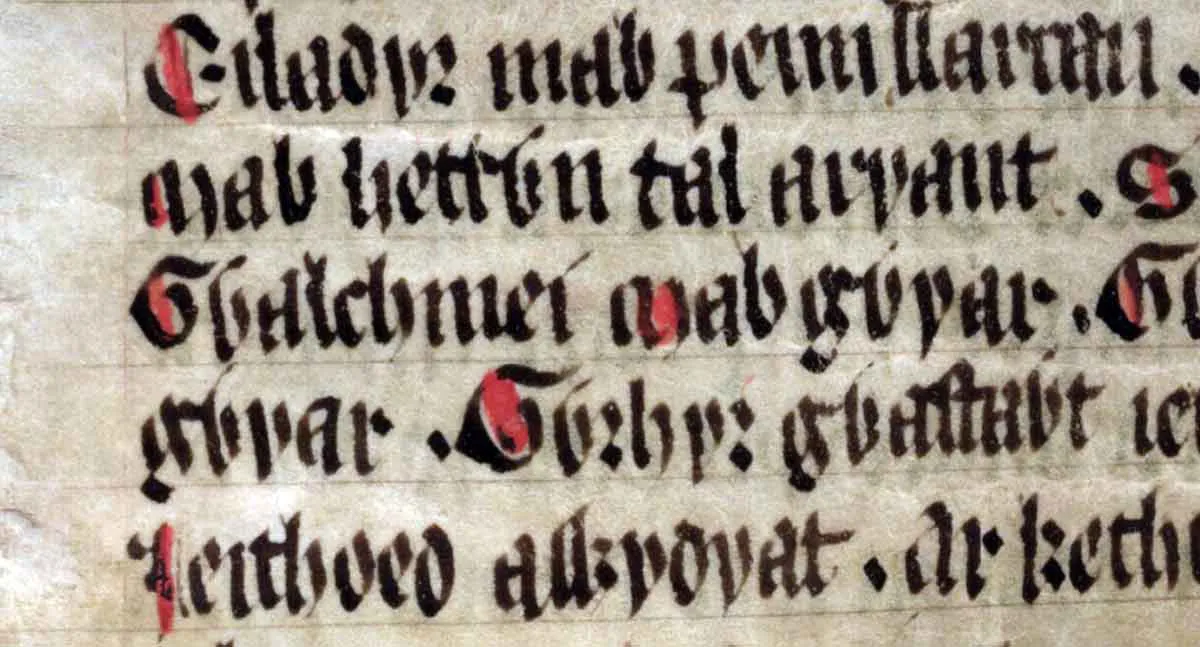 Eiladyr mab penn llarcan .
Mab hettỽn tal aryant . S
Gỽalchmei mab gỽyar . Gỽ
gỽyar . Gỽrhyr gỽastaỽt ie
Ieithoed . Ar keth